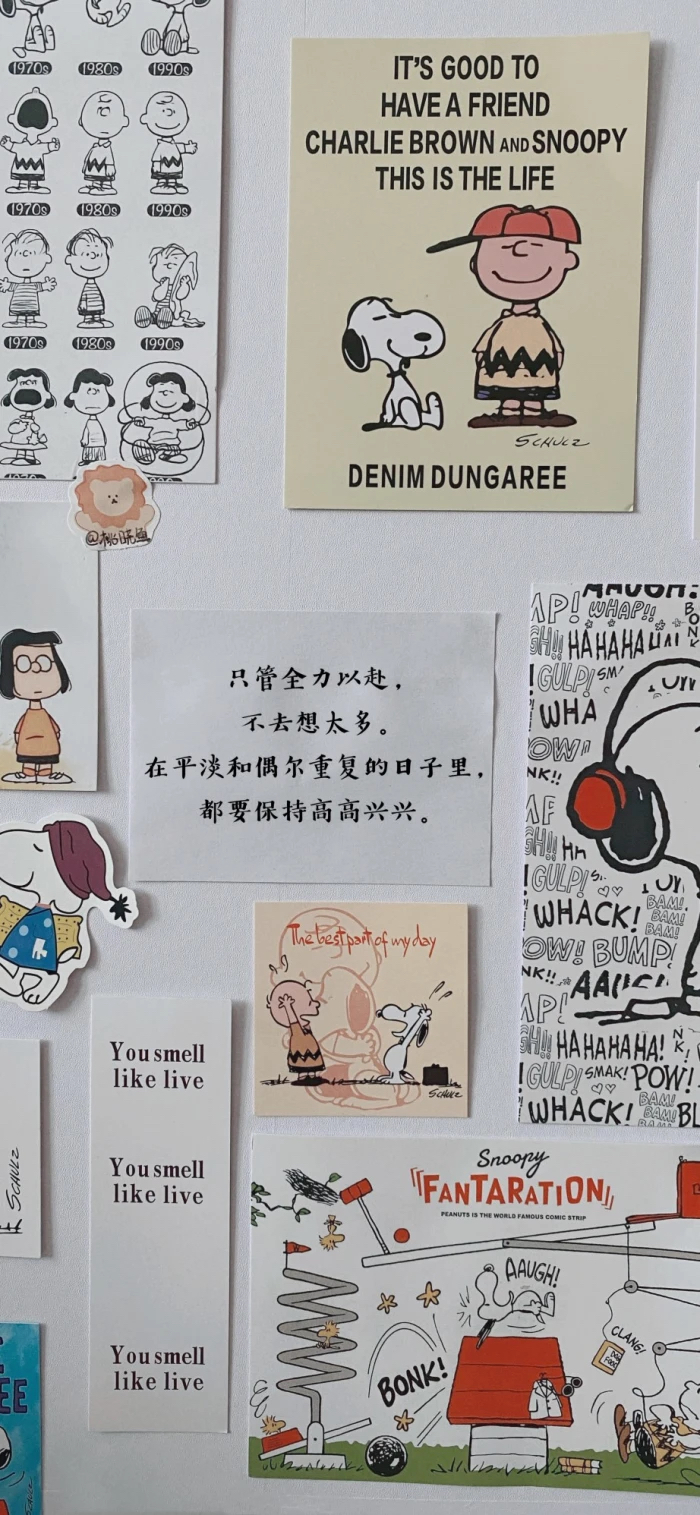 1970s 1980s 1990s
1970s 1980s 1990s
1970s 1980s 1990s
IT'S GOOD TO
HAVE A FRIEND
CHARLIE BROWN AND SNOOPY
THIS IS THE LIFE
SCHULZ
DENIM DUNGAREE
只管全力以赴，
不去想太多。
在平淡和偶尔重复的日子里，
都要保持高高兴兴。
AAUGH!
WHAP!!
HAHAHAHA
GULP!
WHA
The best part of my day
SCHULZ
WHACK!
BAM!
BAM!
BAM!
BUMP!
HAHAHAHA!
GULP! SMAK! POW!
WHACK!
BAM!
BAM!
SCHULZ
You smell
like live
You smell
like live
You smell
like live
Snoopy
FANTARATION
PEANUTS IS THE WORLD FAMOUS COMIC STRIP
AAUGH!
CLANG!
DOG
FOOD
BONK!
EE